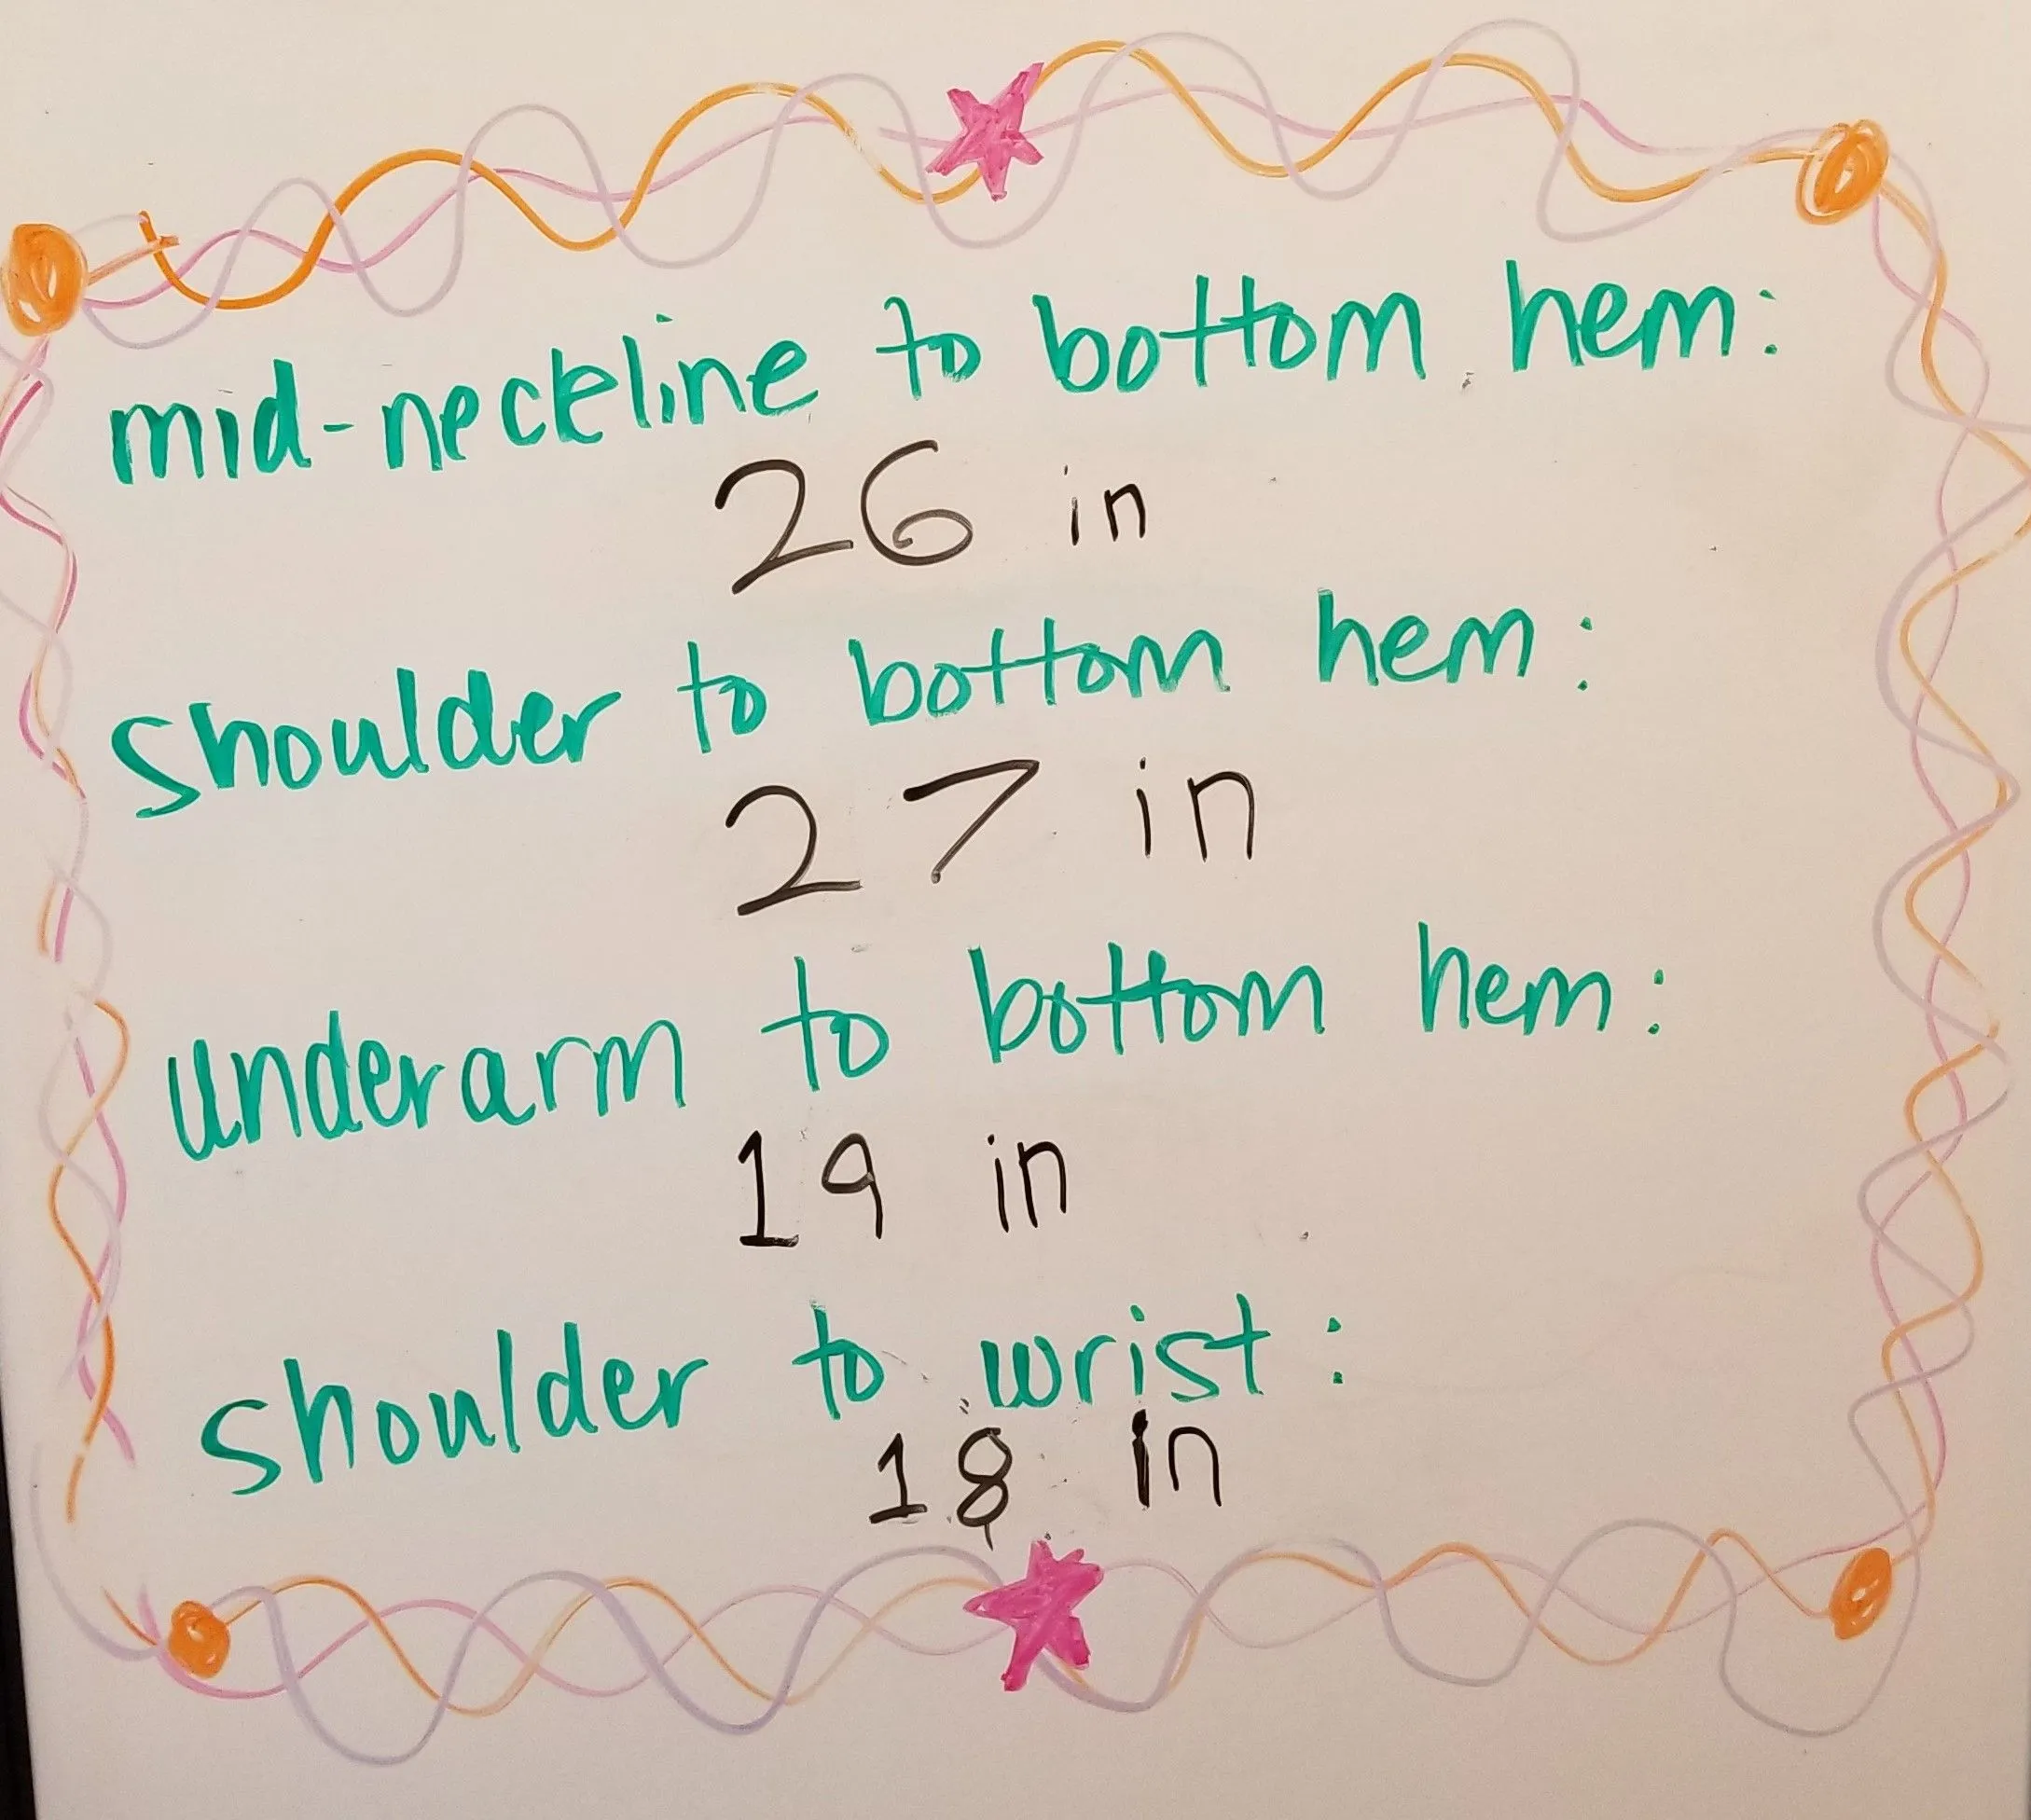 mid-neckline to bottom hem:
26 in
shoulder to bottom hem:
27 in
underarm to bottom hem:
19 in
shoulder to wrist:
18 in